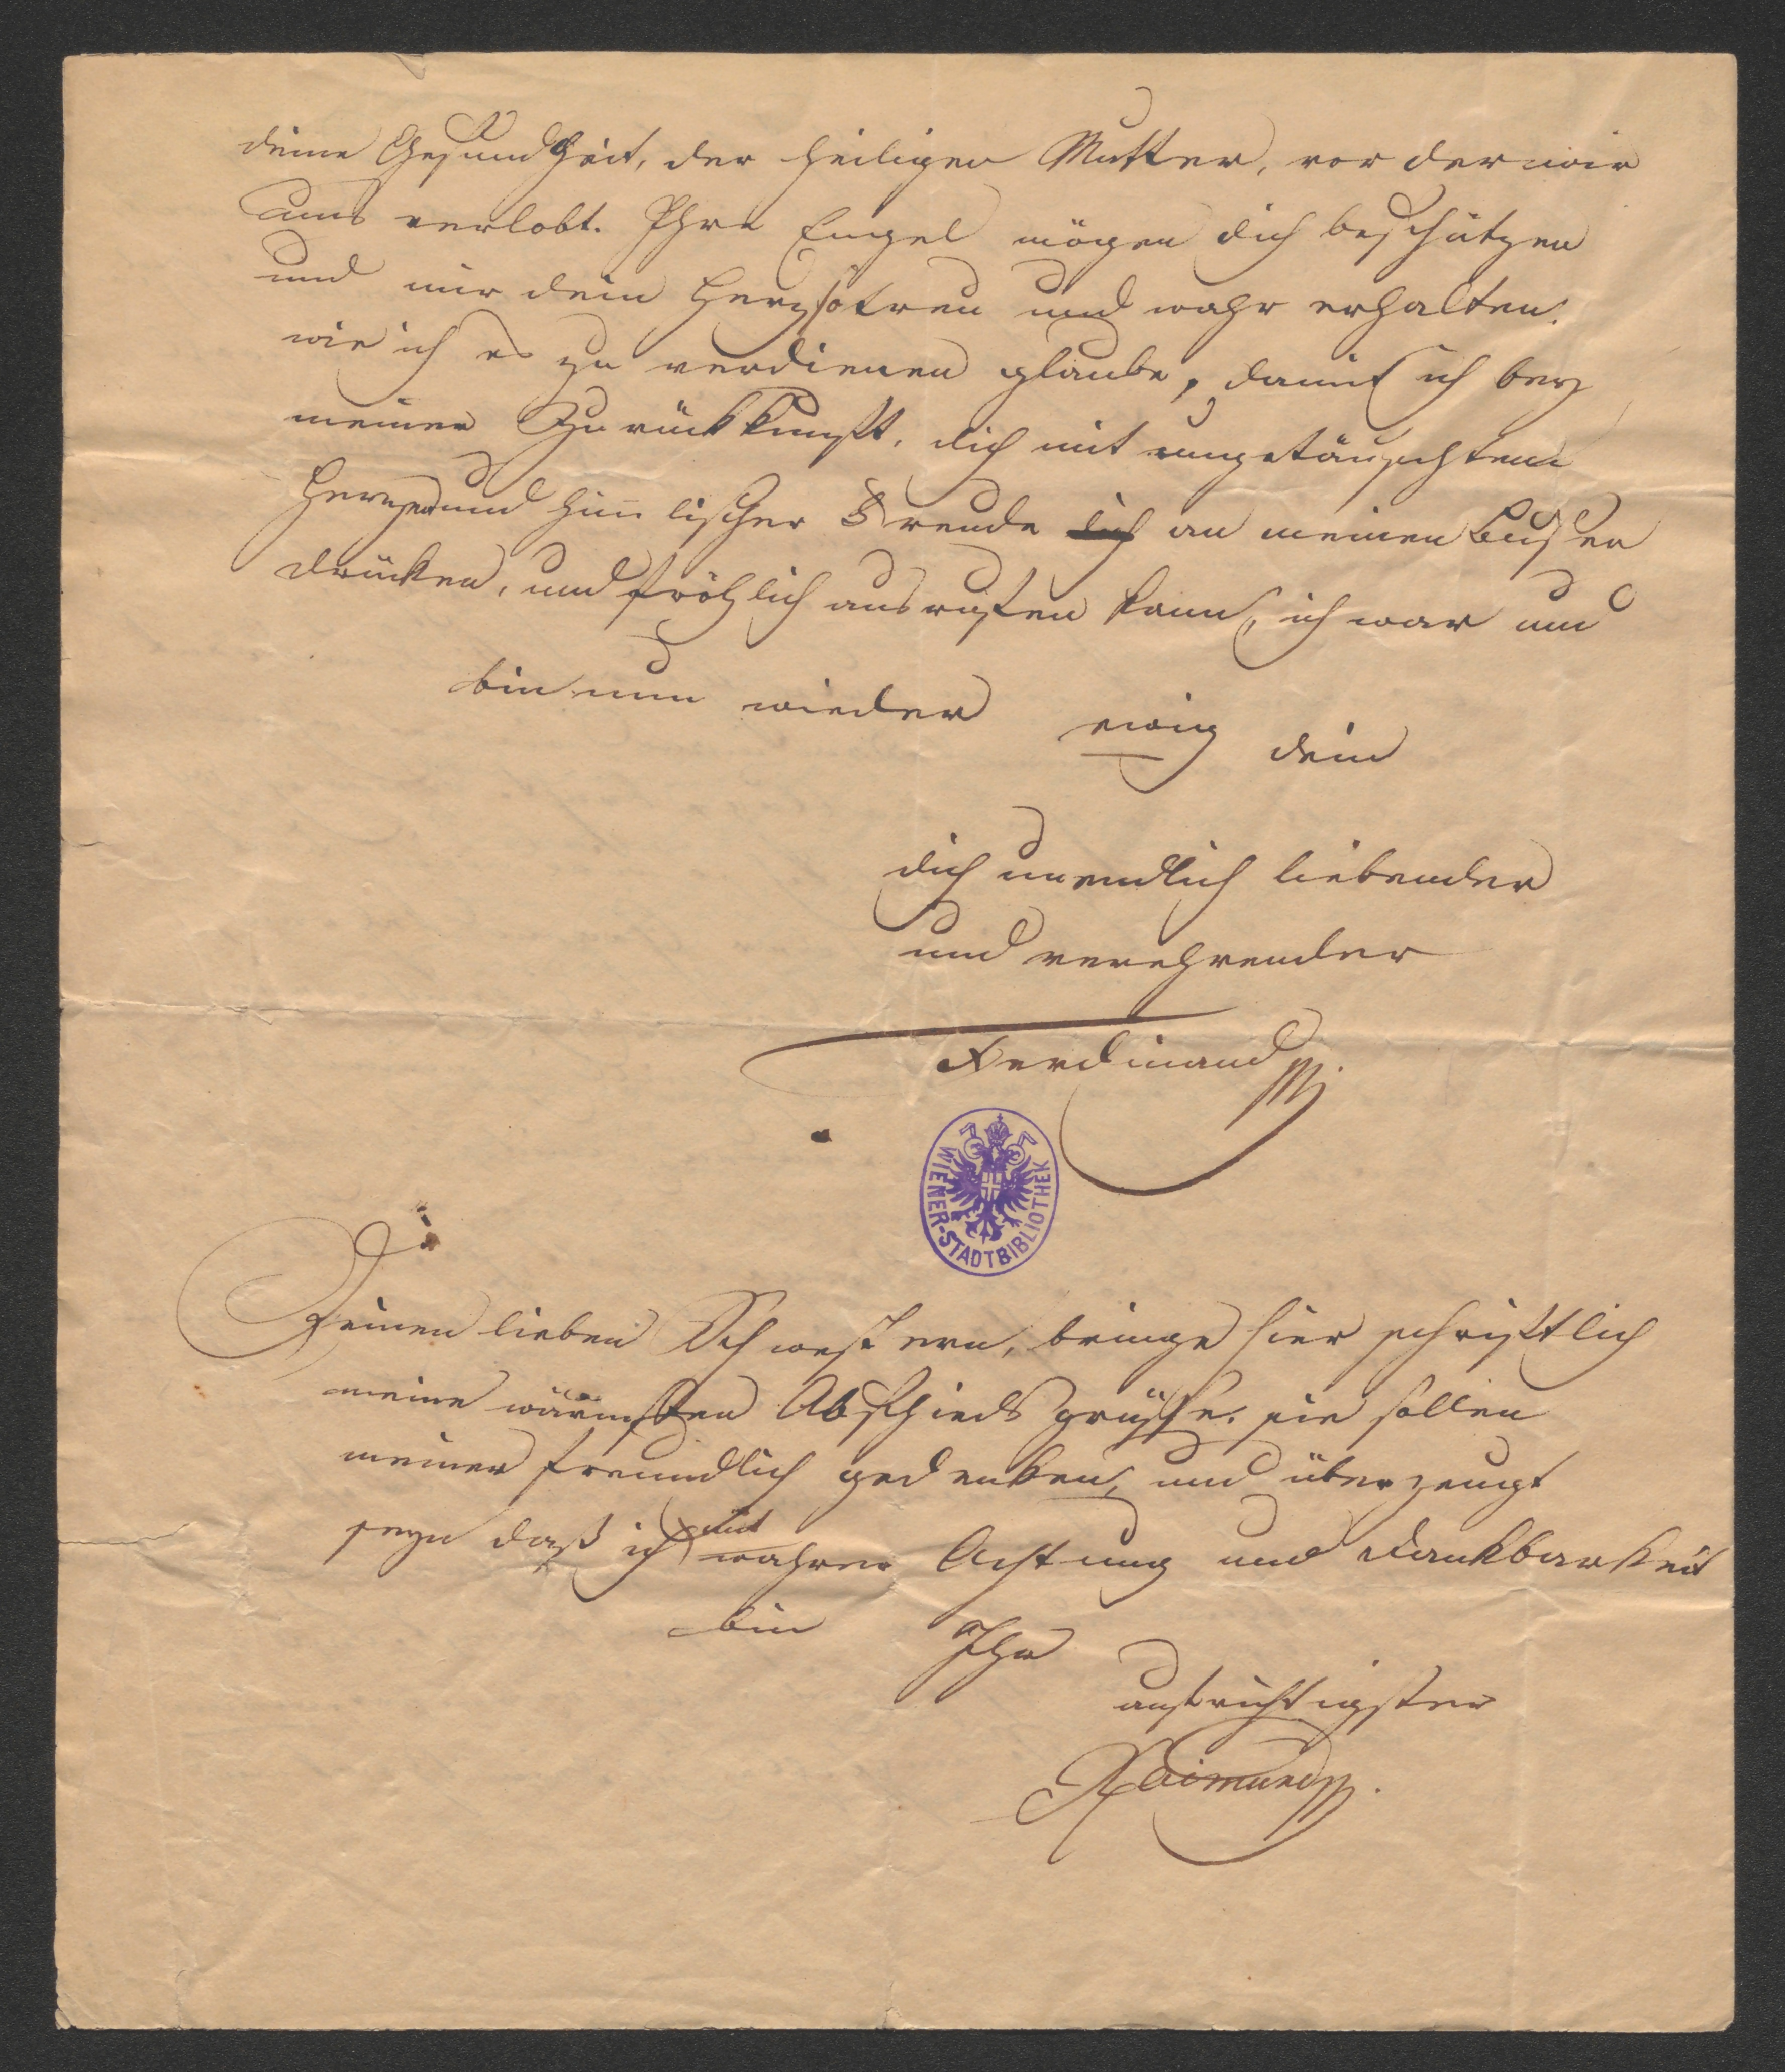 deine Gesundheit, der heiligen Mutter, vor der wir
uns verlobt. Ihre Engel mögen dich beschützen
und mir dein Herz so treu und wahr erhalten,
wie ich es zu verdienen glaube, damit ich bey
meiner Zurückkunft, dich mit ungetäuschtem
Herzen und himlischer Freude dich an meinen Busen
drücken, und fröhlich ausrufen kann, ich war und
bin nun wieder ewig dein
dich unendlich liebender
und verehrender
Ferdinand
WIENER-STADTBIBLIOTHEK
Deinen lieben Schwestern, bringe hier schriftlich
meine wärmsten Abschiedsgrüsse. sie sollen
meiner freundlich gedenken, und überzeugt
seyn daß ich mit wahrer Achtung und Dankbarkeit
bin Ihr
aufrichtigster
Raimund.